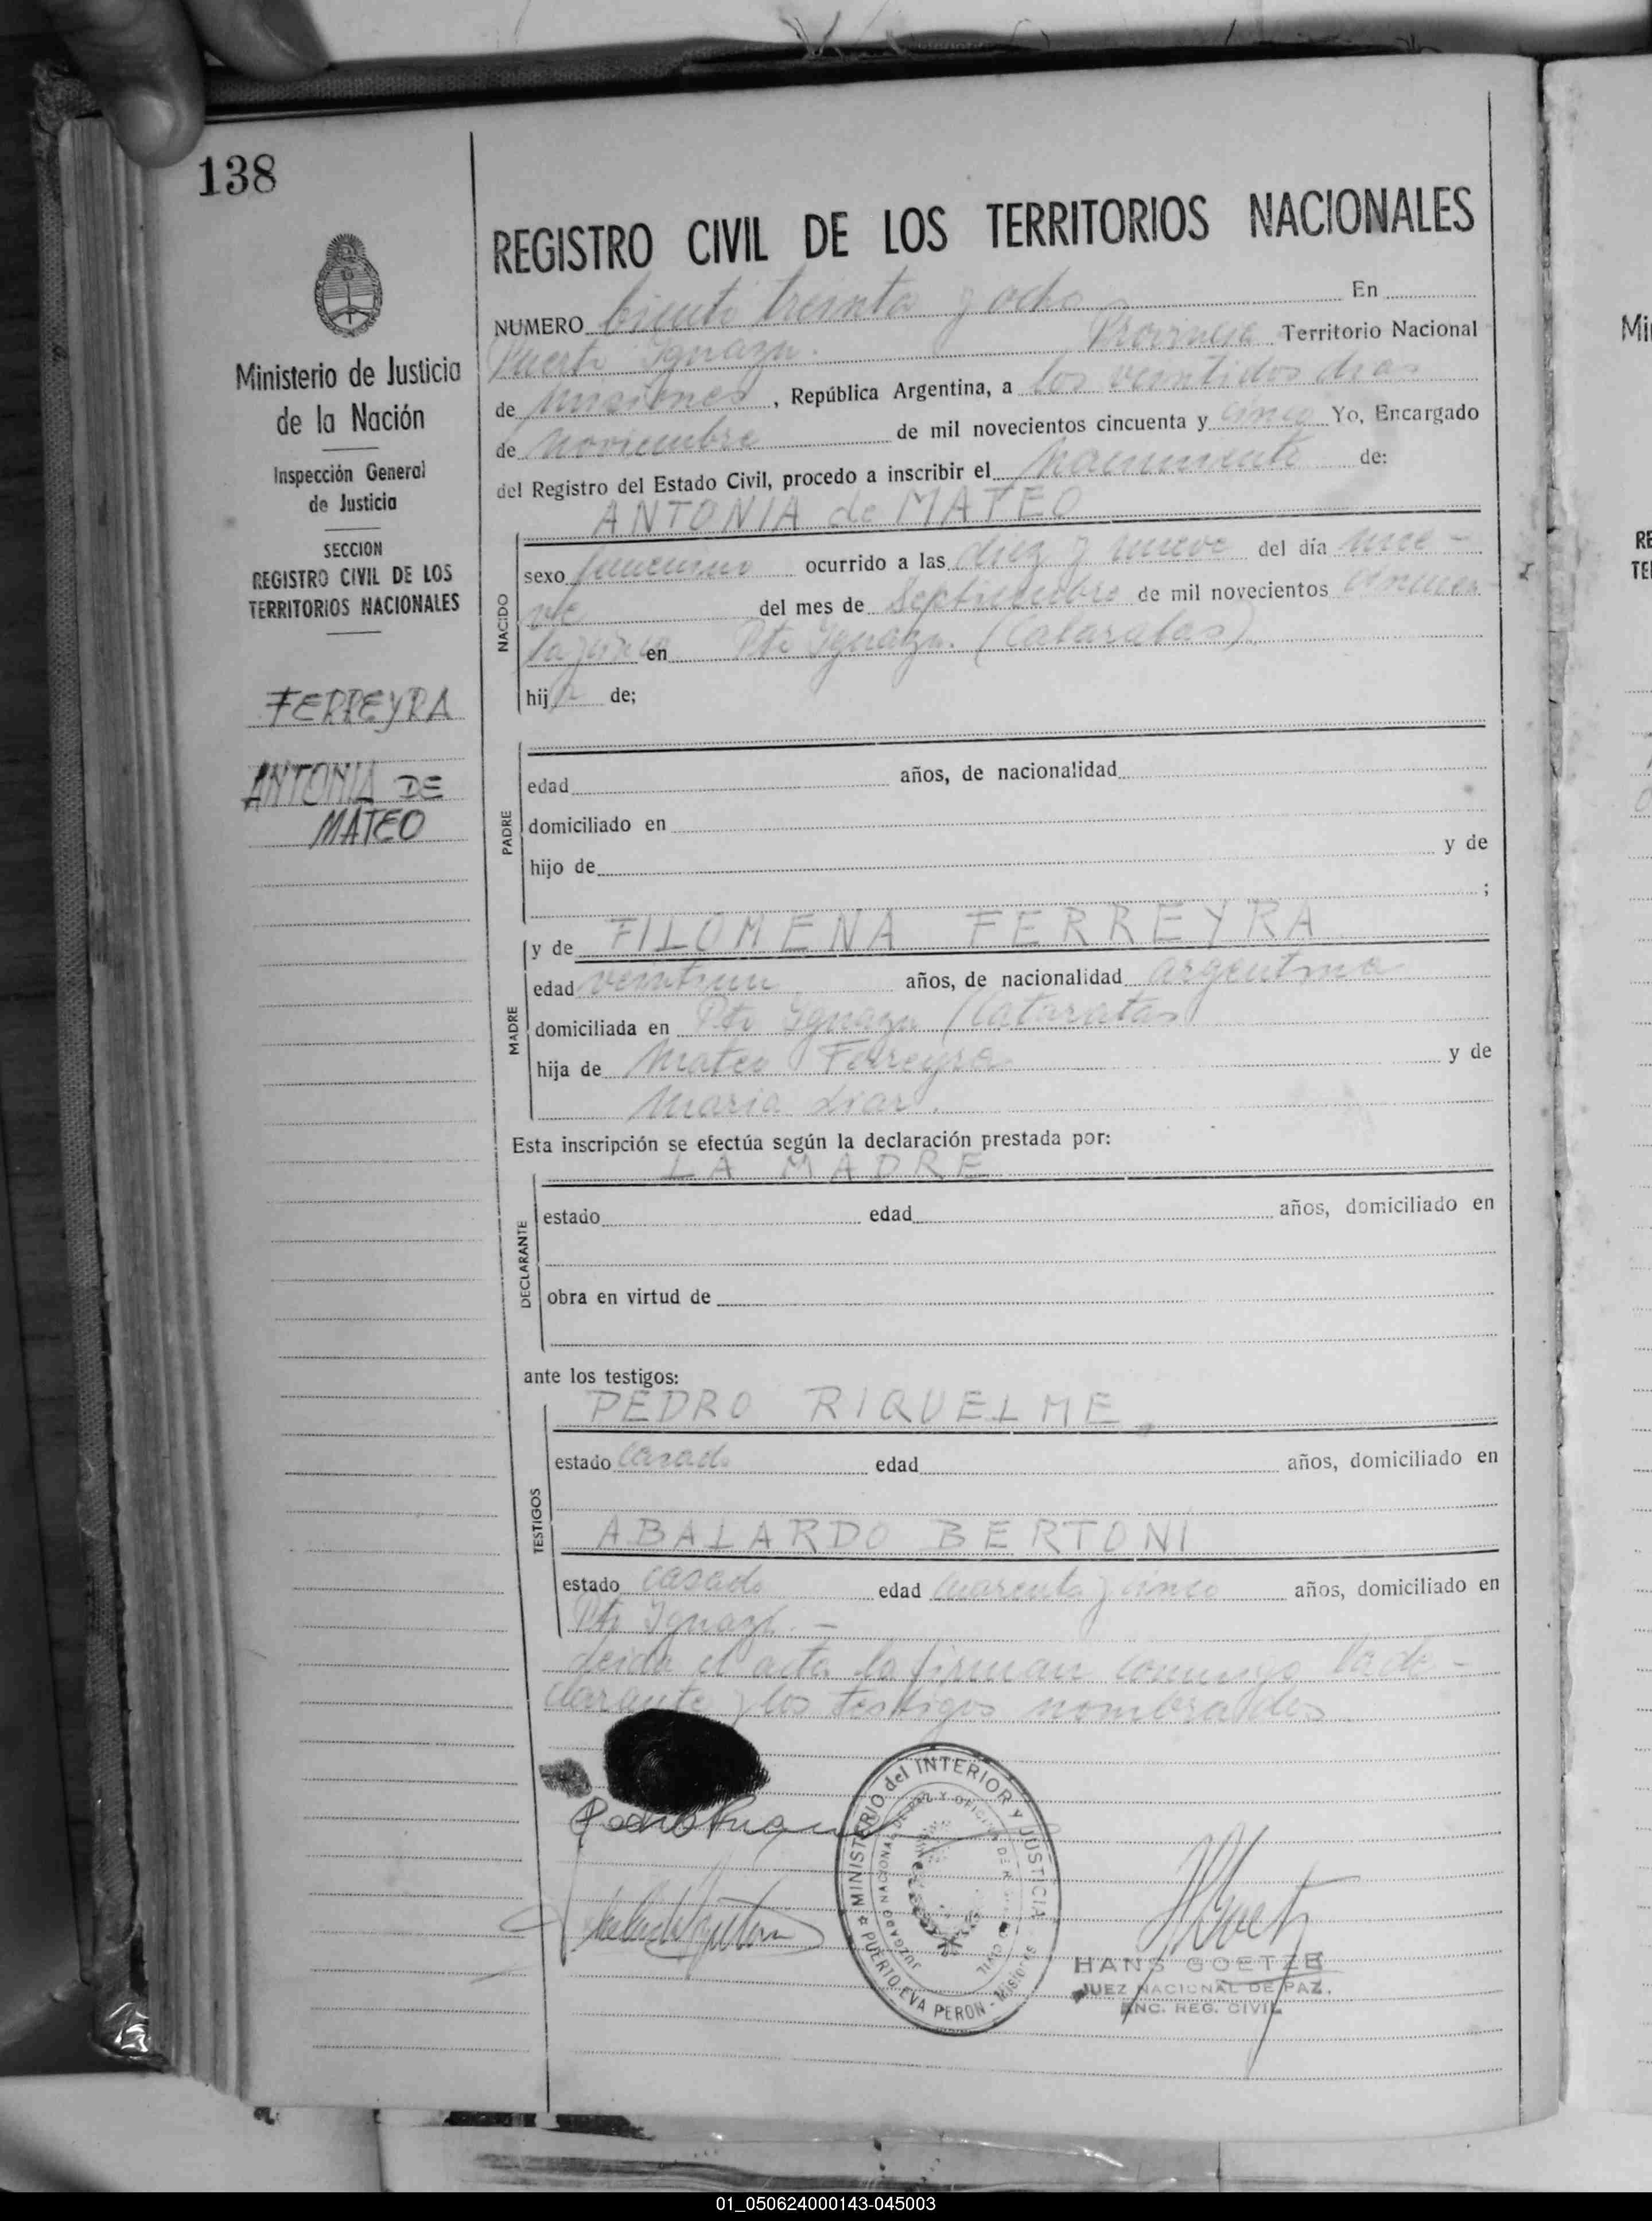 138
Ministerio de Justicia
de la Nación
Inspección General
de Justicia
SECCION
REGISTRO CIVIL DE LOS
TERRITORIOS NACIONALES
FERREYRA
ANTONIA DE
MATEO
REGISTRO CIVIL DE LOS TERRITORIOS NACIONALES
NUMERO Ciento treinta y ocho En
Puerto Iguazu. Provincia Territorio Nacional
de Misiones, República Argentina, a los veintidos dias
de Noviembre de mil novecientos cincuenta y cinco Yo, Encargado
del Registro del Estado Civil, procedo a inscribir el Nacimiento de:
ANTONIA de MATEO
NACIDO
sexo femenino ocurrido a las diez y nueve del día nue-
ve del mes de Septiembre de mil novecientos cincuen
ta y cinco en Pto Iguazu. (Cataratas)
hija de;
PADRE
edad años, de nacionalidad
domiciliado en
hijo de y de
;
MADRE
y de FILOMENA FERREYRA
edad veintiun años, de nacionalidad argentina
domiciliada en Pto Iguazu (Cataratas
hija de Mateo Ferreyra y de
Maria
Esta inscripción se efectúa según la declaración prestada por:
LA MADRE
DECLARANTE
estado edad años, domiciliado en
obra en virtud de
ante los testigos:
TESTIGOS
PEDRO RIQUELME,
estado casado edad años, domiciliado en
ABALARDO BERTONI
estado casado edad cuarenta y cinco años, domiciliado en
Pto Iguazu. -
Leida el acta la firman conmigo la de-
clarante y los testigos nombrados
MINISTERIO del INTERIOR Y JUSTICIA
JUZGADO NACIONAL DE PAZ Y OFICINA DE CIVIL
PUERTO EVA PERON - Misiones
HANS GOETZE
JUEZ NACIONAL DE PAZ.
ENC. REG. CIVIL
01_050624000143-045003